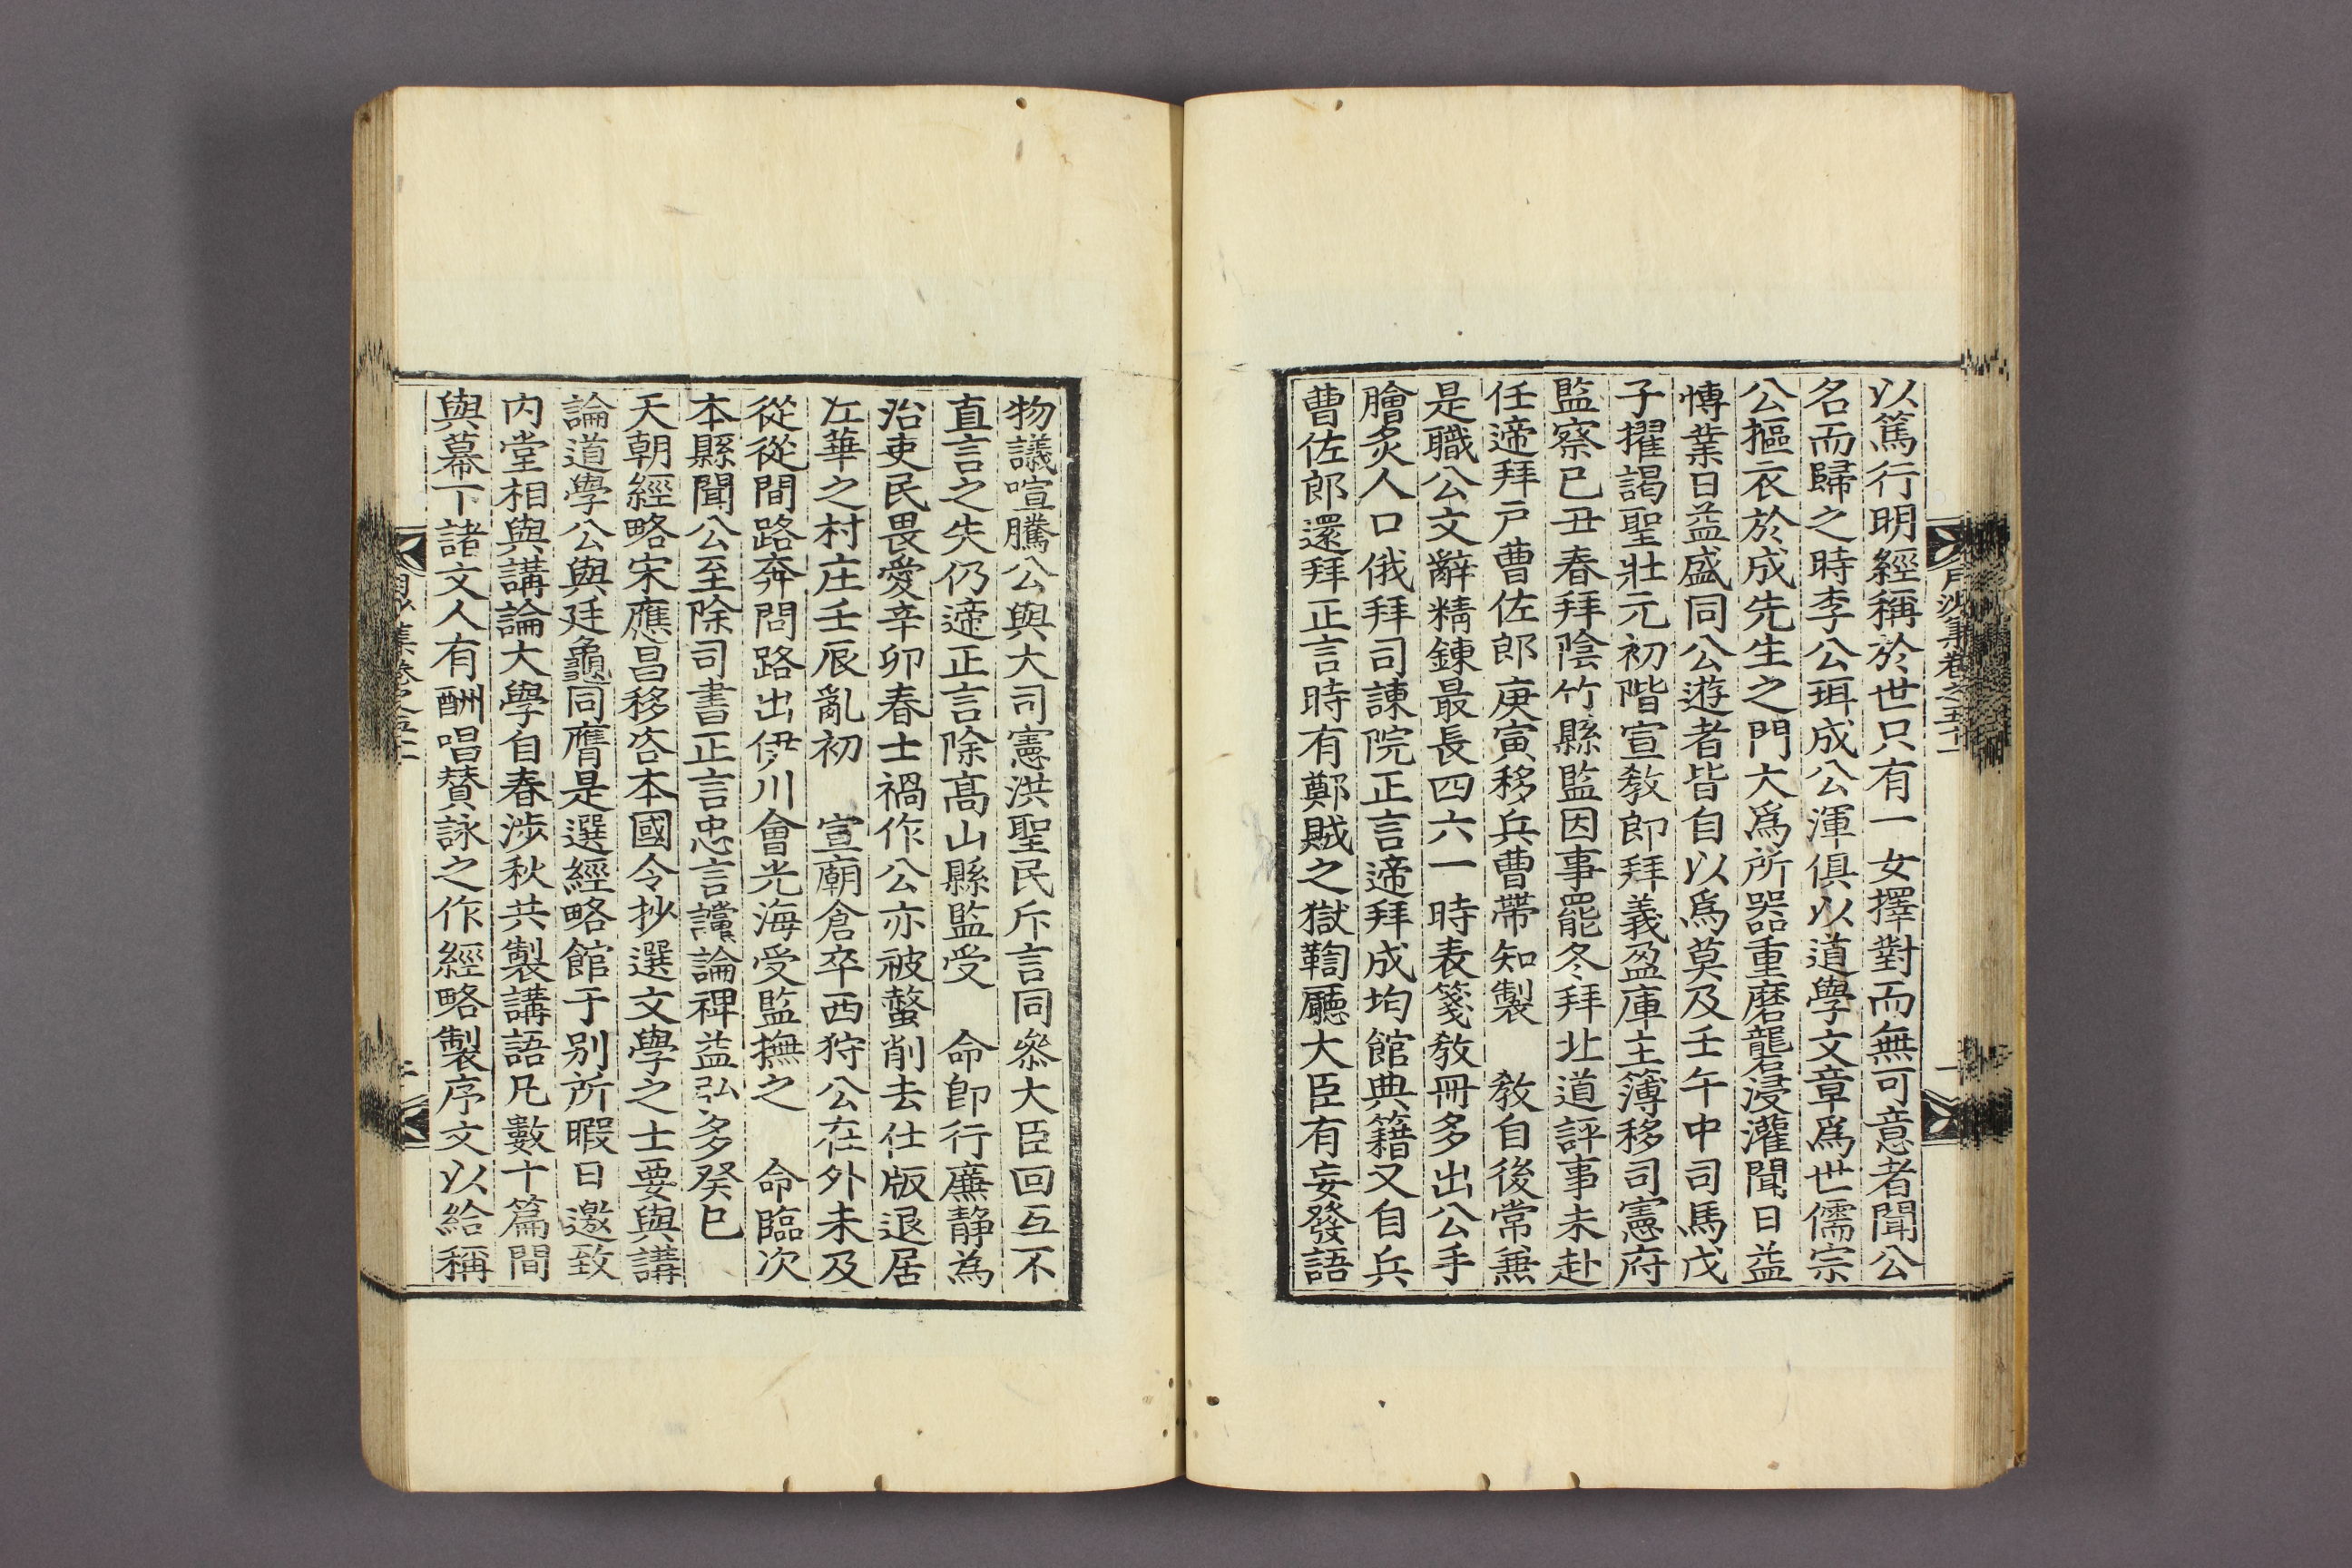 以篤行明經稱於世只有一女擇對而無可意者聞公
名而歸之時李公珥成公渾俱以道學文章爲世儒宗
公摳衣於成先生之門大爲所器重磨礱浸灌聞日益
愽業日益盛同公遊者皆自以爲莫及壬午中司馬戊
子擢謁聖壯元初階宣敎郎拜義盈庫主簿移司憲府
監察已丑春拜陰竹縣監因事罷冬拜北道評事未赴
任遞拜戶曹佐郎庚寅移兵曹帶知製　敎自後常兼
是職公文辭精鍊最長四六一時表箋敎冊多出公手
膾炙人口俄拜司諫院正言遞拜成均館典籍又自兵
曹佐郎還拜正言時有鄭賊之獄鞫廳大臣有妄發語
物議喧騰公與大司憲洪聖民斥言同叅大臣回互不
直言之失仍遞正言除高山縣監受　命卽行廉靜為
治吏民畏愛辛卯春士禍作公亦被螫削去仕版退居
江華之村庄壬辰亂初　宣廟倉卒西狩公在外未及
從從間路奔問路出伊川會光海受監撫之　命臨次
本縣聞公至除司書正言忠言讜論裨益弘多癸巳
天朝經略宋應昌移咨本國令抄選文學之士要與講
論道學公與廷龜同膺是選經略館于別所暇日邀致
內堂相與講論大學自春涉秋共製講語凡數十篇間
與幕下諸文人有酬唱賛詠之作經略製序文以給稱
月沙集卷之五十一